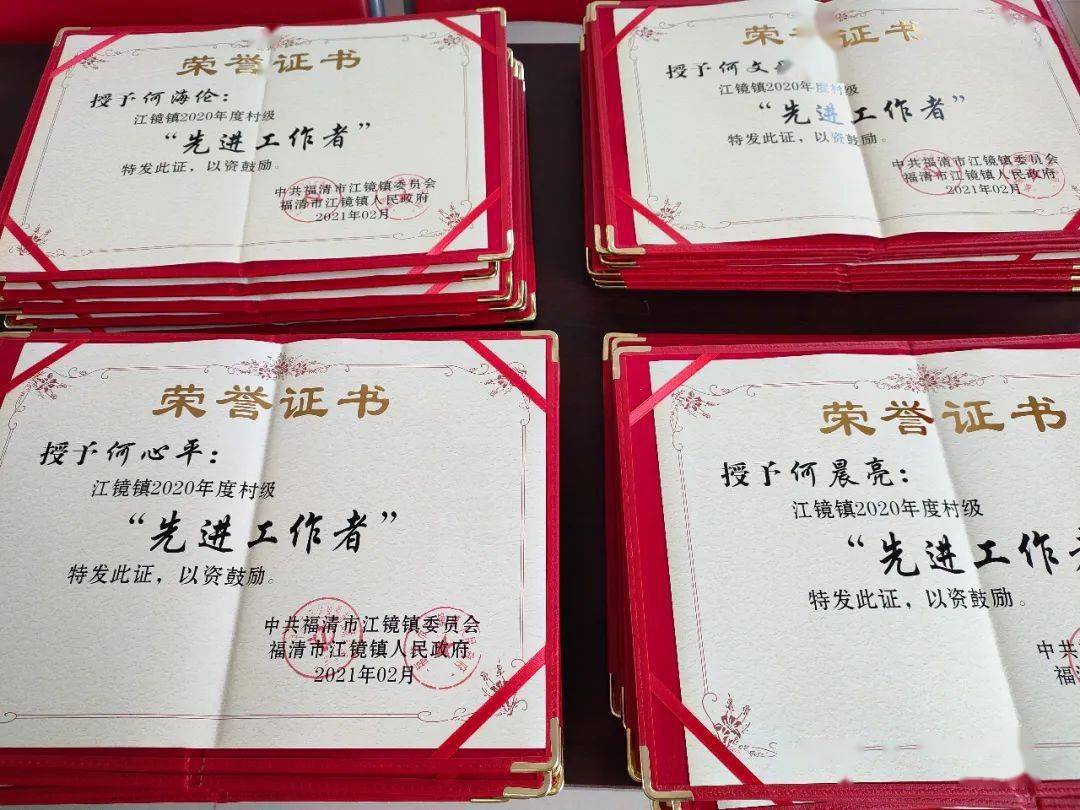 荣誉证书
授予何海伦：
江镜镇2020年度村级
“先进工作者”
特发此证，以资鼓励。
中共福清市江镜镇委员会
福清市江镜镇人民政府
2021年02月
荣誉证书
授予何文
江镜镇2020年度村级
“先进工作者”
特发此证，以资鼓励。
中共福清市江镜镇委员会
福清市江镜镇人民政府
2021年02月
荣誉证书
授予何心平：
江镜镇2020年度村级
“先进工作者”
特发此证，以资鼓励。
中共福清市江镜镇委员会
福清市江镜镇人民政府
2021年02月
荣誉证书
授予何晨亮：
江镜镇2020年度村级
“先进工作者
特发此证，以资鼓励。
中共福
福清